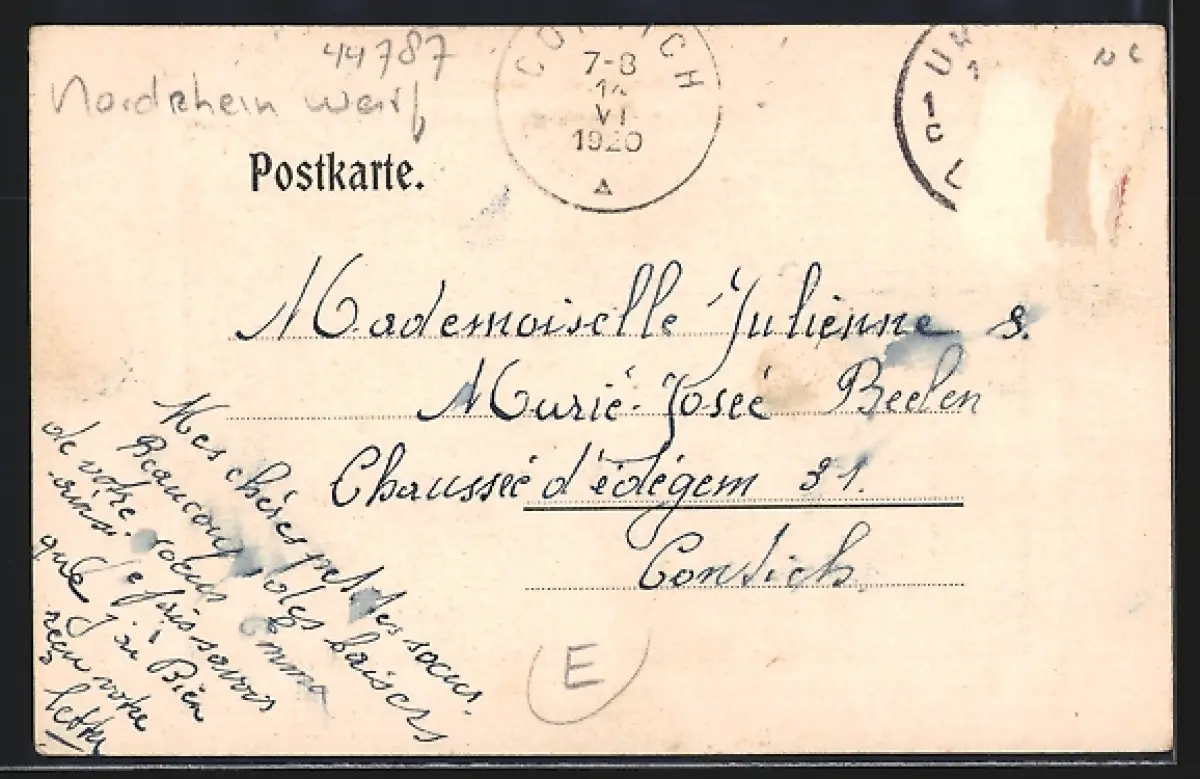 44787
Nordrhein Westf
Postkarte.
CONTICH
7-8
14
VI
1920
Mademoiselle Julienne &.
Marié-Joséé Beelen
Chausséé d'édégem 31.
Contich
Mes chères petites soeurs.
Beaucoup des baisers
de votre soeur Emma
ainsi Je fais savoir
que j'ai Bièn
reçu votre
lettre
E